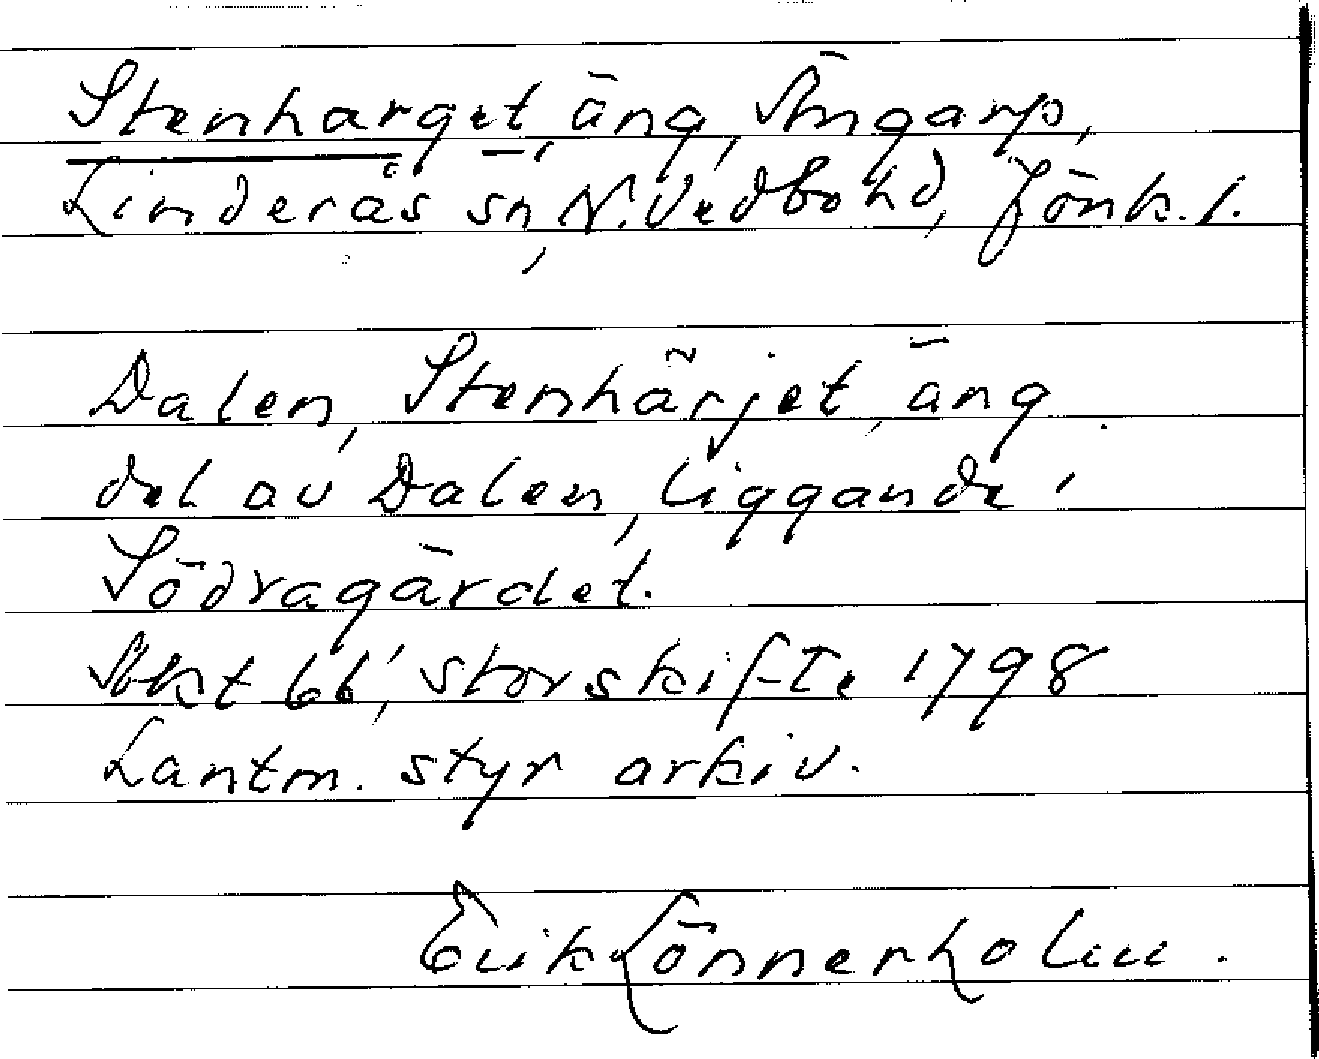 Stenharget, äng, Angarp,
Linderås sn, N. Vedbo hd, Jönk. l.
Dalen, Stenhärjet, äng
del av Dalen, liggande i
Södragärdet.
Akt 66, storskifte 1798
Lantm. styr arkiv.
Erik Lönnerholm.